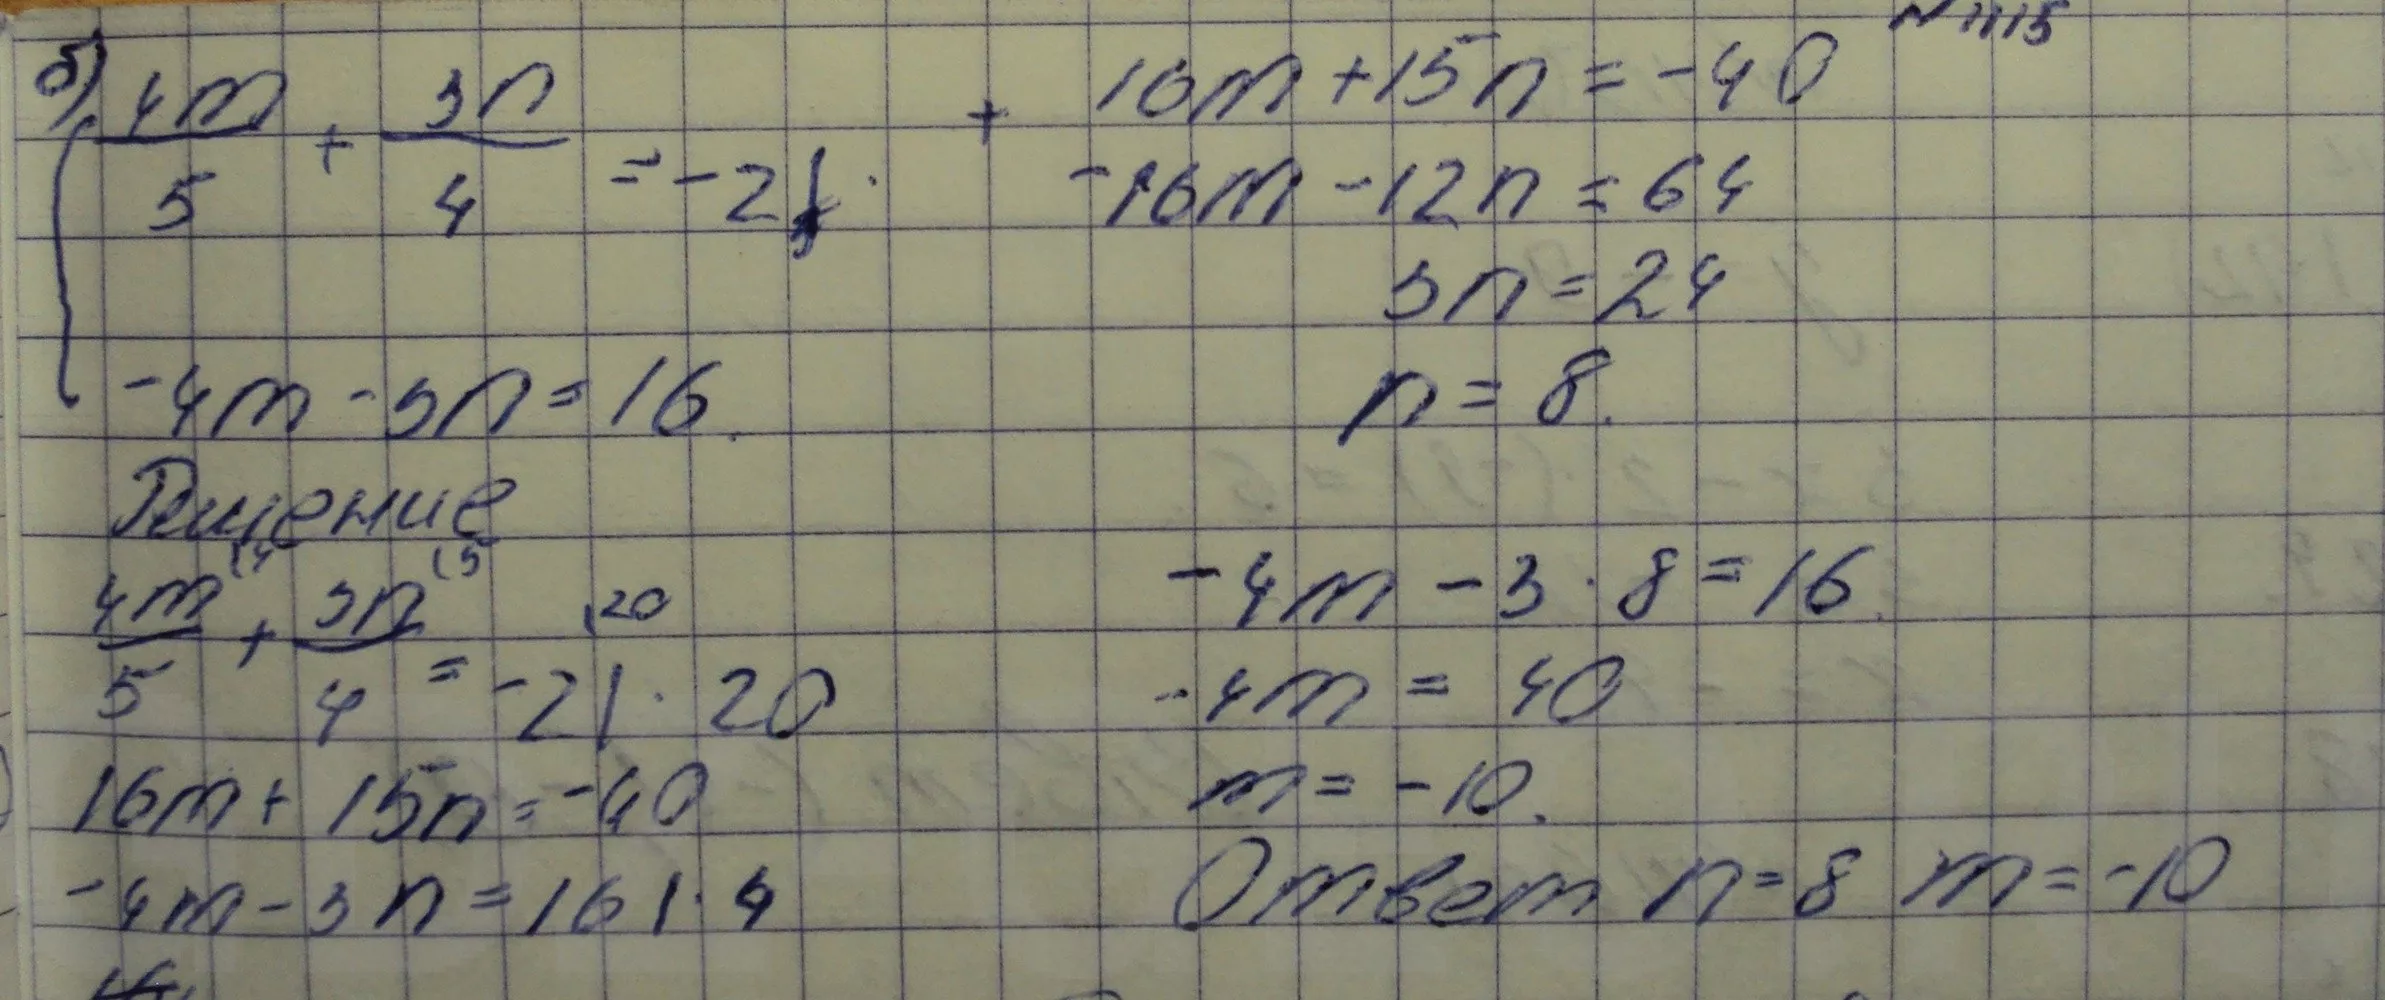 №1115
б)
4m/5 + 3n/4 = -2
-4m - 3n = 16.
Решение
4m/5 (4 + 3n/4 (5 = -2 |·20
16m + 15n = -40
-4m - 3n = 16 |·4
+ 16m + 15n = -40
-16m - 12n = 64
3n = 24
n = 8.
-4m - 3·8 = 16.
-4m = 40
m = -10.
Ответ n = 8 m = -10